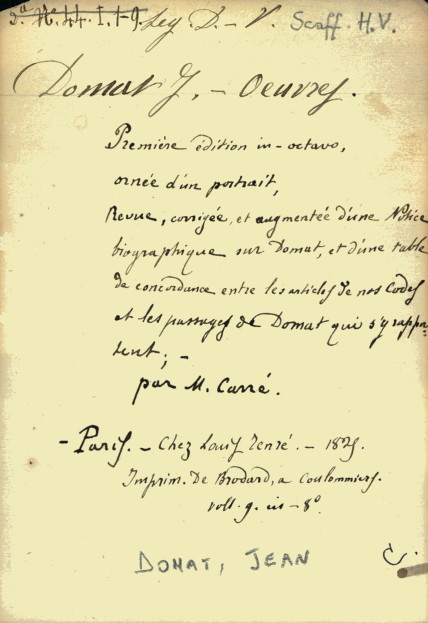 2.a N.º 44. I. 1-9. Leg. D. - V. Scaff. H.V.
Domat J. - Oeuvres.
Première édition in-octavo,
ornée d'un portrait,
Revue, corrigée, et augmentée d'une Notice
biographique sur Domat, et d'une table
de concordance entre les articles de nos Codes
et les passages de Domat qui s'y rappor-
tent; -
par M. Carré.
- Paris. - Chez Louis Tenré. - 1825.
Imprim. De Brodard, a Coulommiers.
voll. 9. in - 8°
DOMAT, JEAN
C.